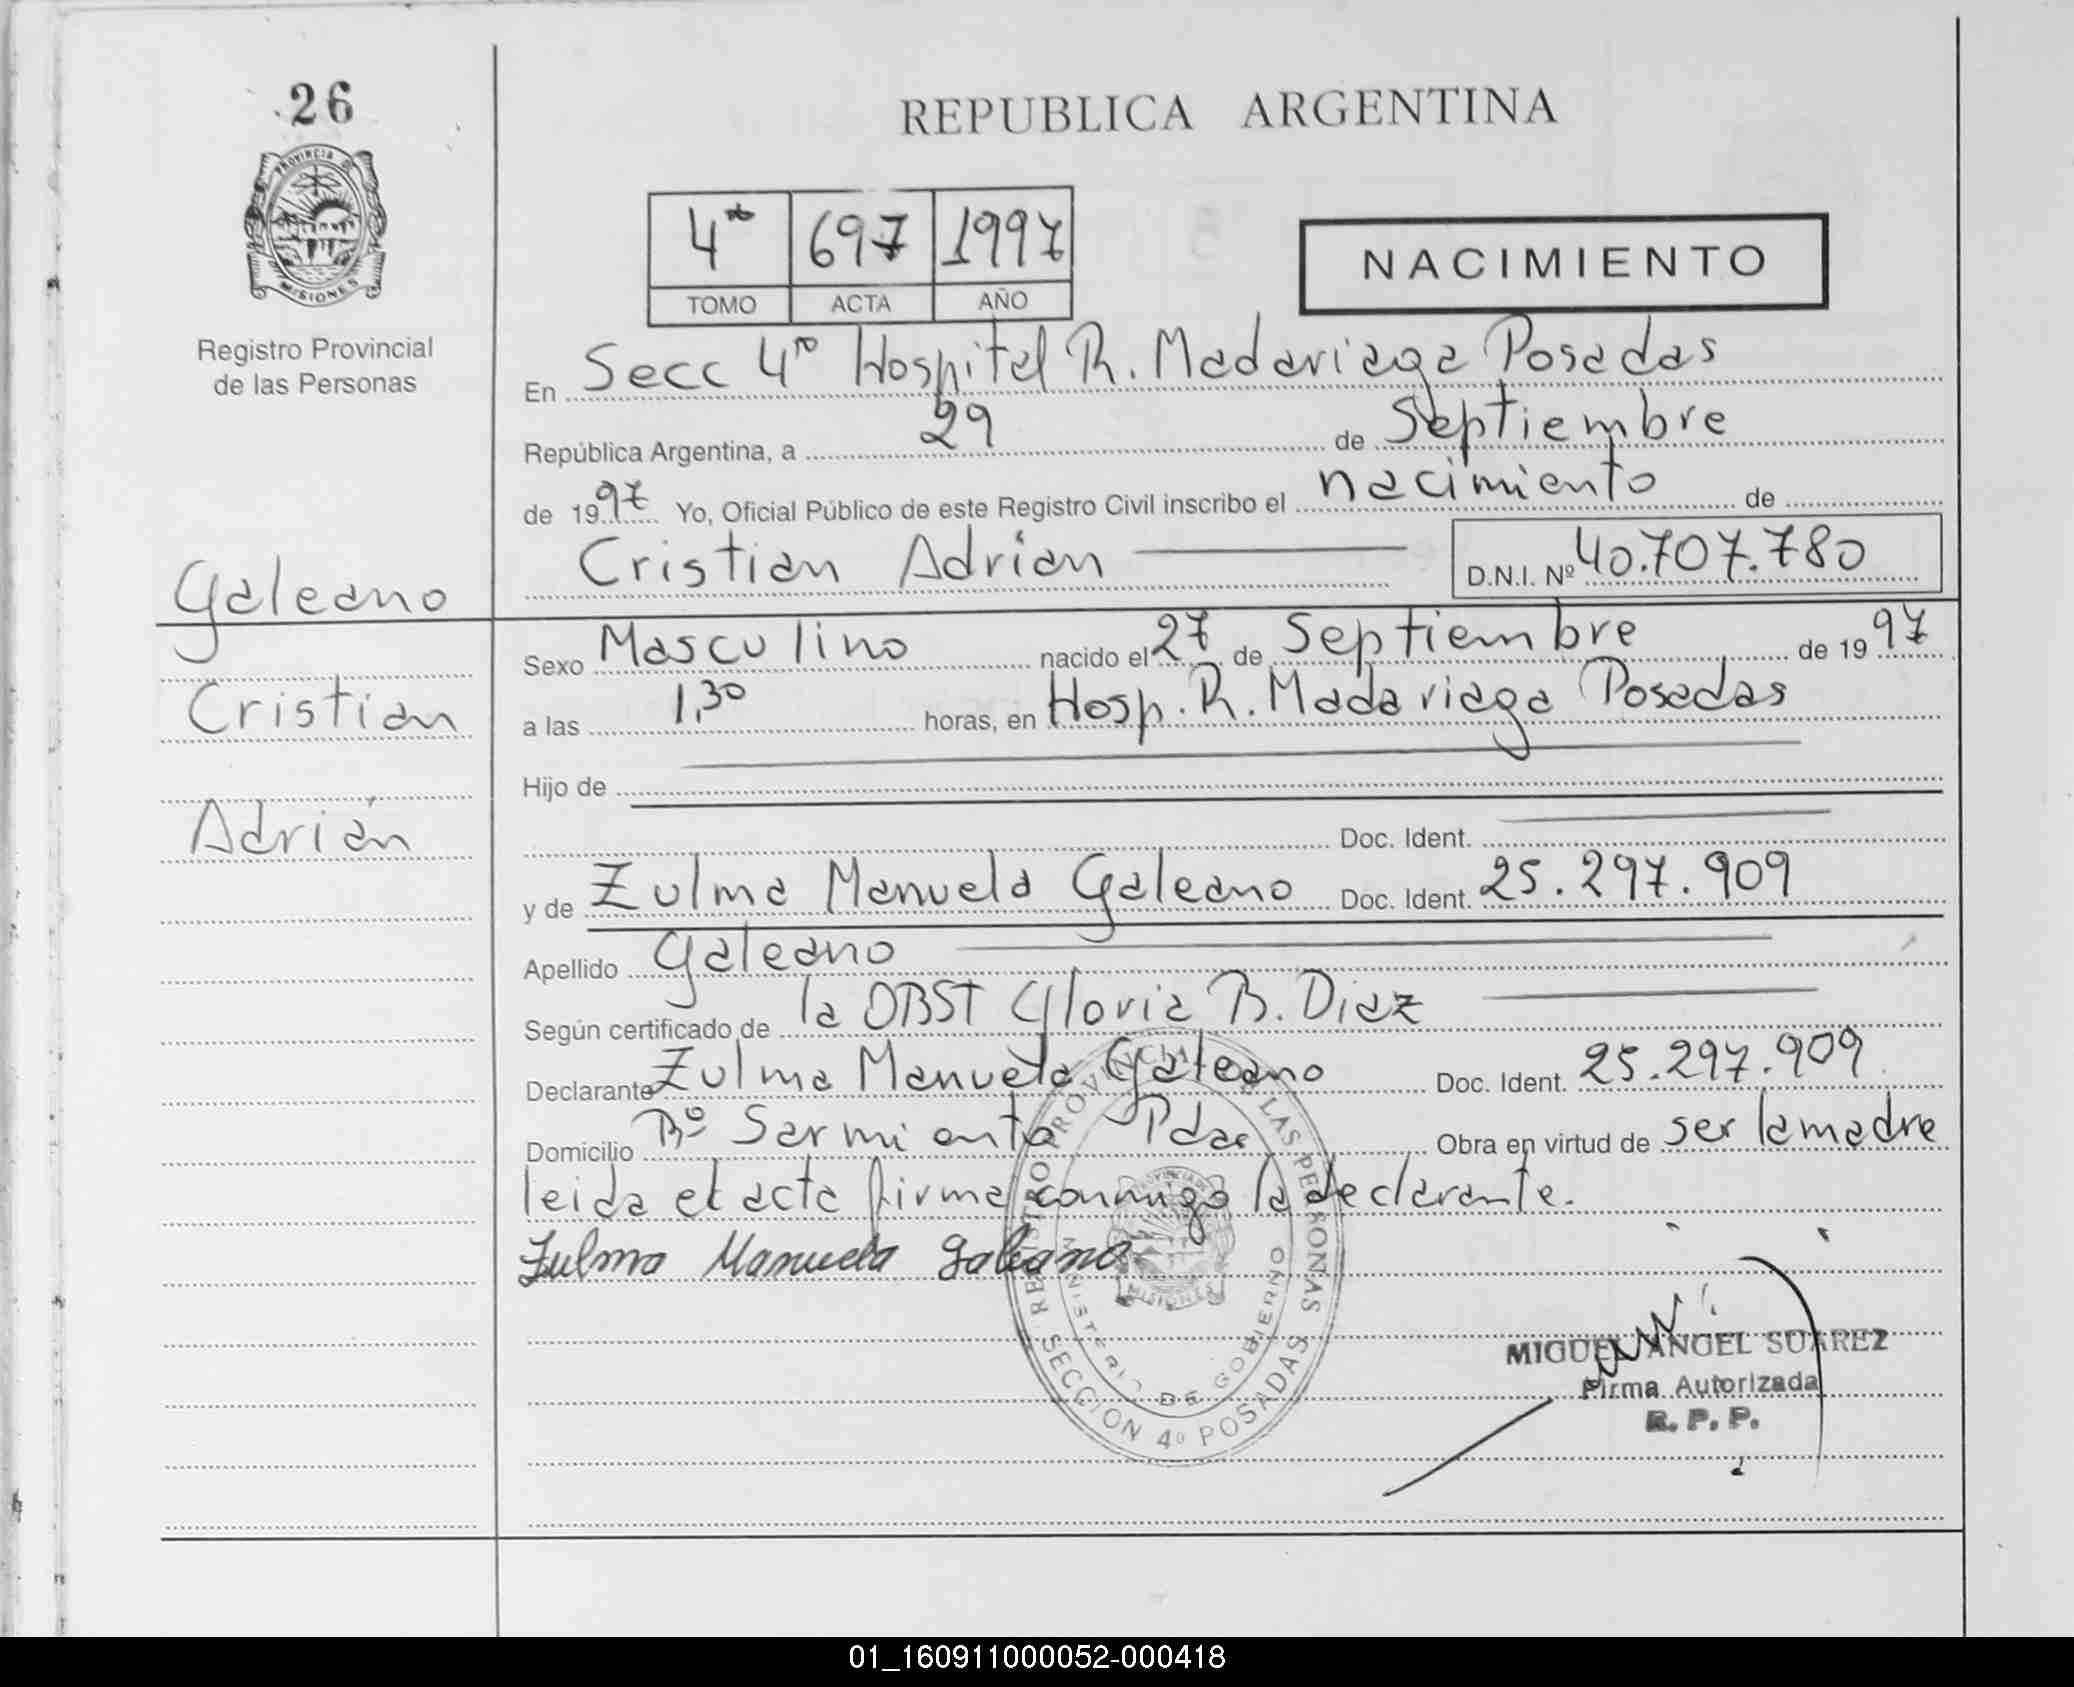 26
PROVINCIA DE
MISIONES
Registro Provincial
de las Personas
Galeano
Cristian
Adrián
REPUBLICA ARGENTINA
4to 697 1997
TOMO ACTA AÑO
NACIMIENTO
En Secc 4ta Hospital R. Madariaga Posadas
República Argentina, a 29 de Septiembre
de 1997 Yo, Oficial Público de este Registro Civil inscribo el nacimiento de
Cristian Adrián D.N.I. Nº 40.707.780
Sexo Masculino nacido el 27 de Septiembre de 1997
a las 1,30 horas, en Hosp. R. Madariaga Posadas
Hijo de
Doc. Ident.
y de Zulma Manuela Galeano Doc. Ident. 25.297.909
Apellido Galeano
Según certificado de la OBST Gloria B. Diaz
Declarante Zulma Manuela Galeano Doc. Ident. 25.297.909
Domicilio Bº Sarmiento Pdas Obra en virtud de ser la madre
leida el acta firma conmigo la declarante.
Zulma Manuela Galeano
REGISTRO PROVINCIAL DE LAS PERSONAS
MINISTERIO DE GOBIERNO
MISIONES
SECCION 4º POSADAS
MIGUEL ANGEL SUAREZ
Firma Autorizada
R. P. P.
01_160911000052-000418